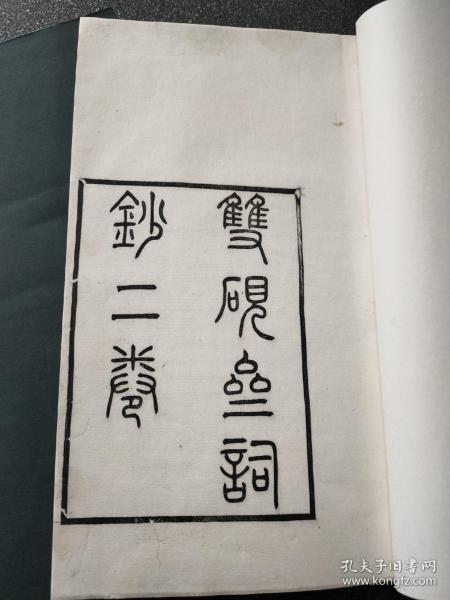 雙硯亝詞
鈔二卷
孔夫子旧书网
www.kongfz.com